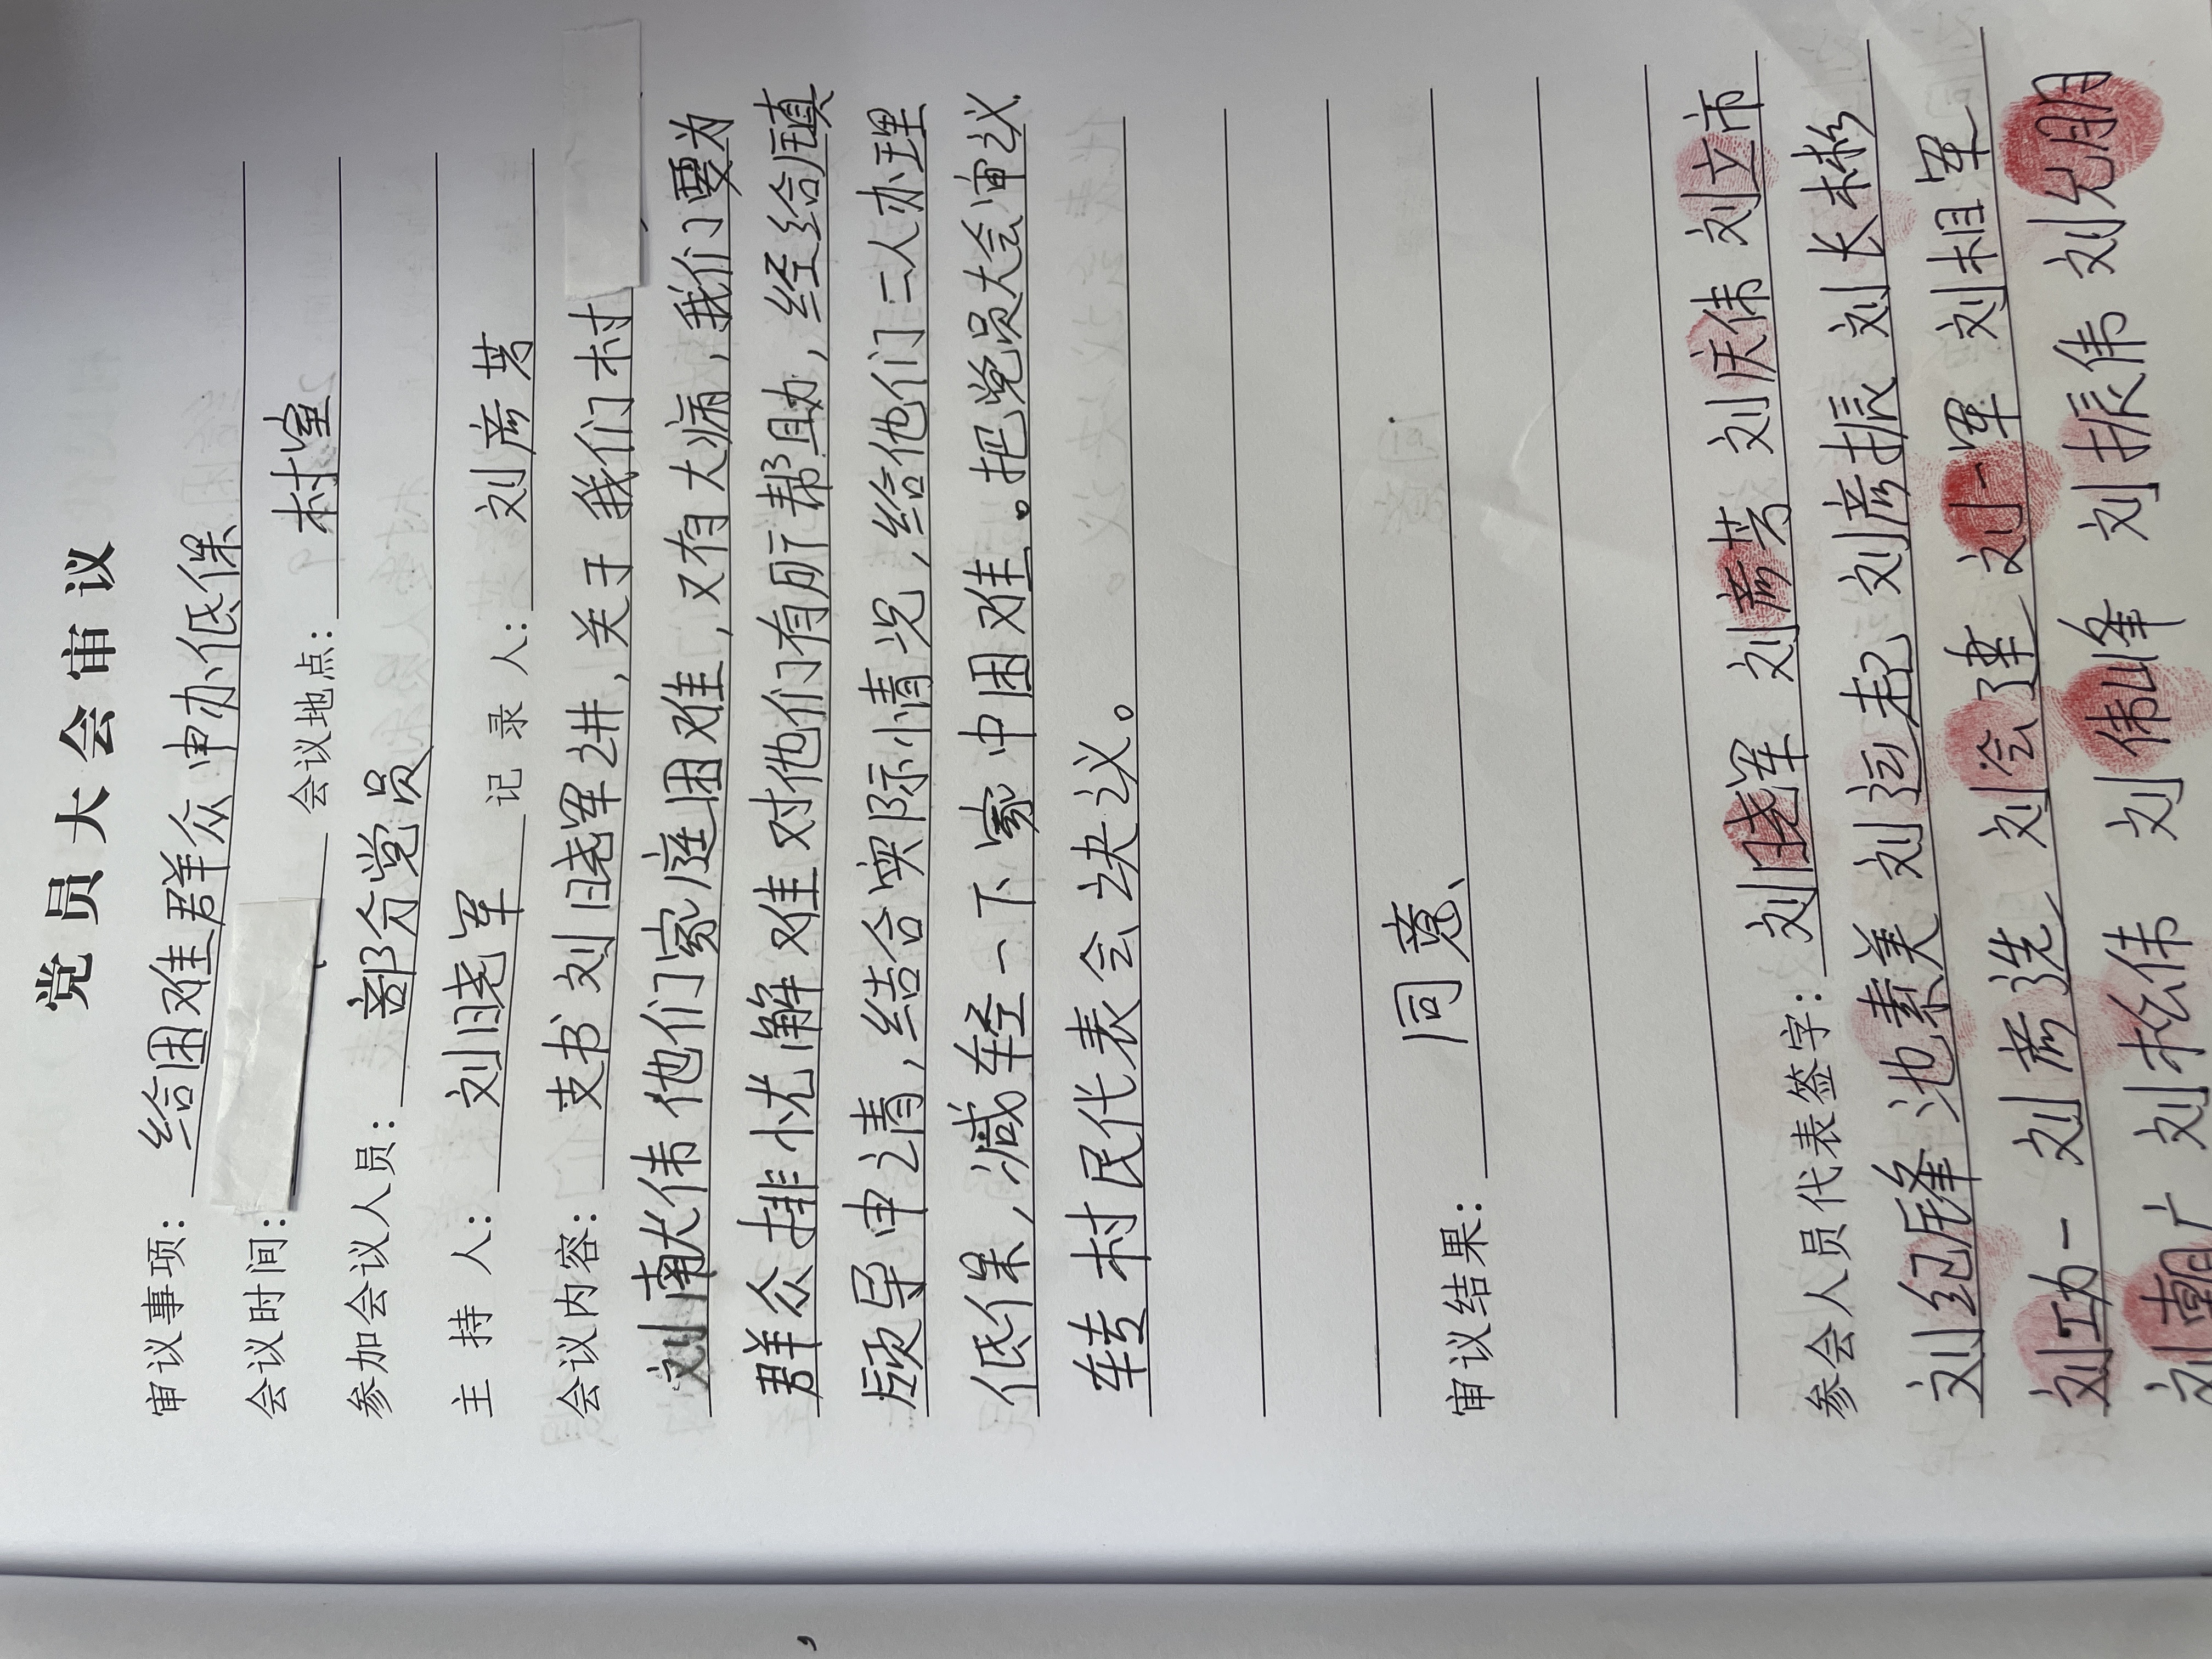 党员大会审议
审议事项: 给困难群众申办低保
会议时间: 会议地点: 村室
参加会议人员: 部分党员
主持人: 刘晓军 记录人: 刘彦芳
会议内容: 支书刘晓军讲,关于我们村
刘献伟他们家庭困难,又有大病,我们要为
群众排忧解难对他们有所帮助,经给镇
领导申请,结合实际情况,给他们二人办理
低保,减轻一下家中困难。把党员大会审议
转村民代表会决议。
审议结果: 同意
参会人员代表签字: 刘晓军 刘彦芳 刘庆伟 刘立市
刘纪锋 池素美 刘运起 刘彦振 刘长彬
刘功一 刘彦选 刘会建 刘一军 刘相军
刘朝广 刘松伟 刘伟峰 刘振伟 刘允朋